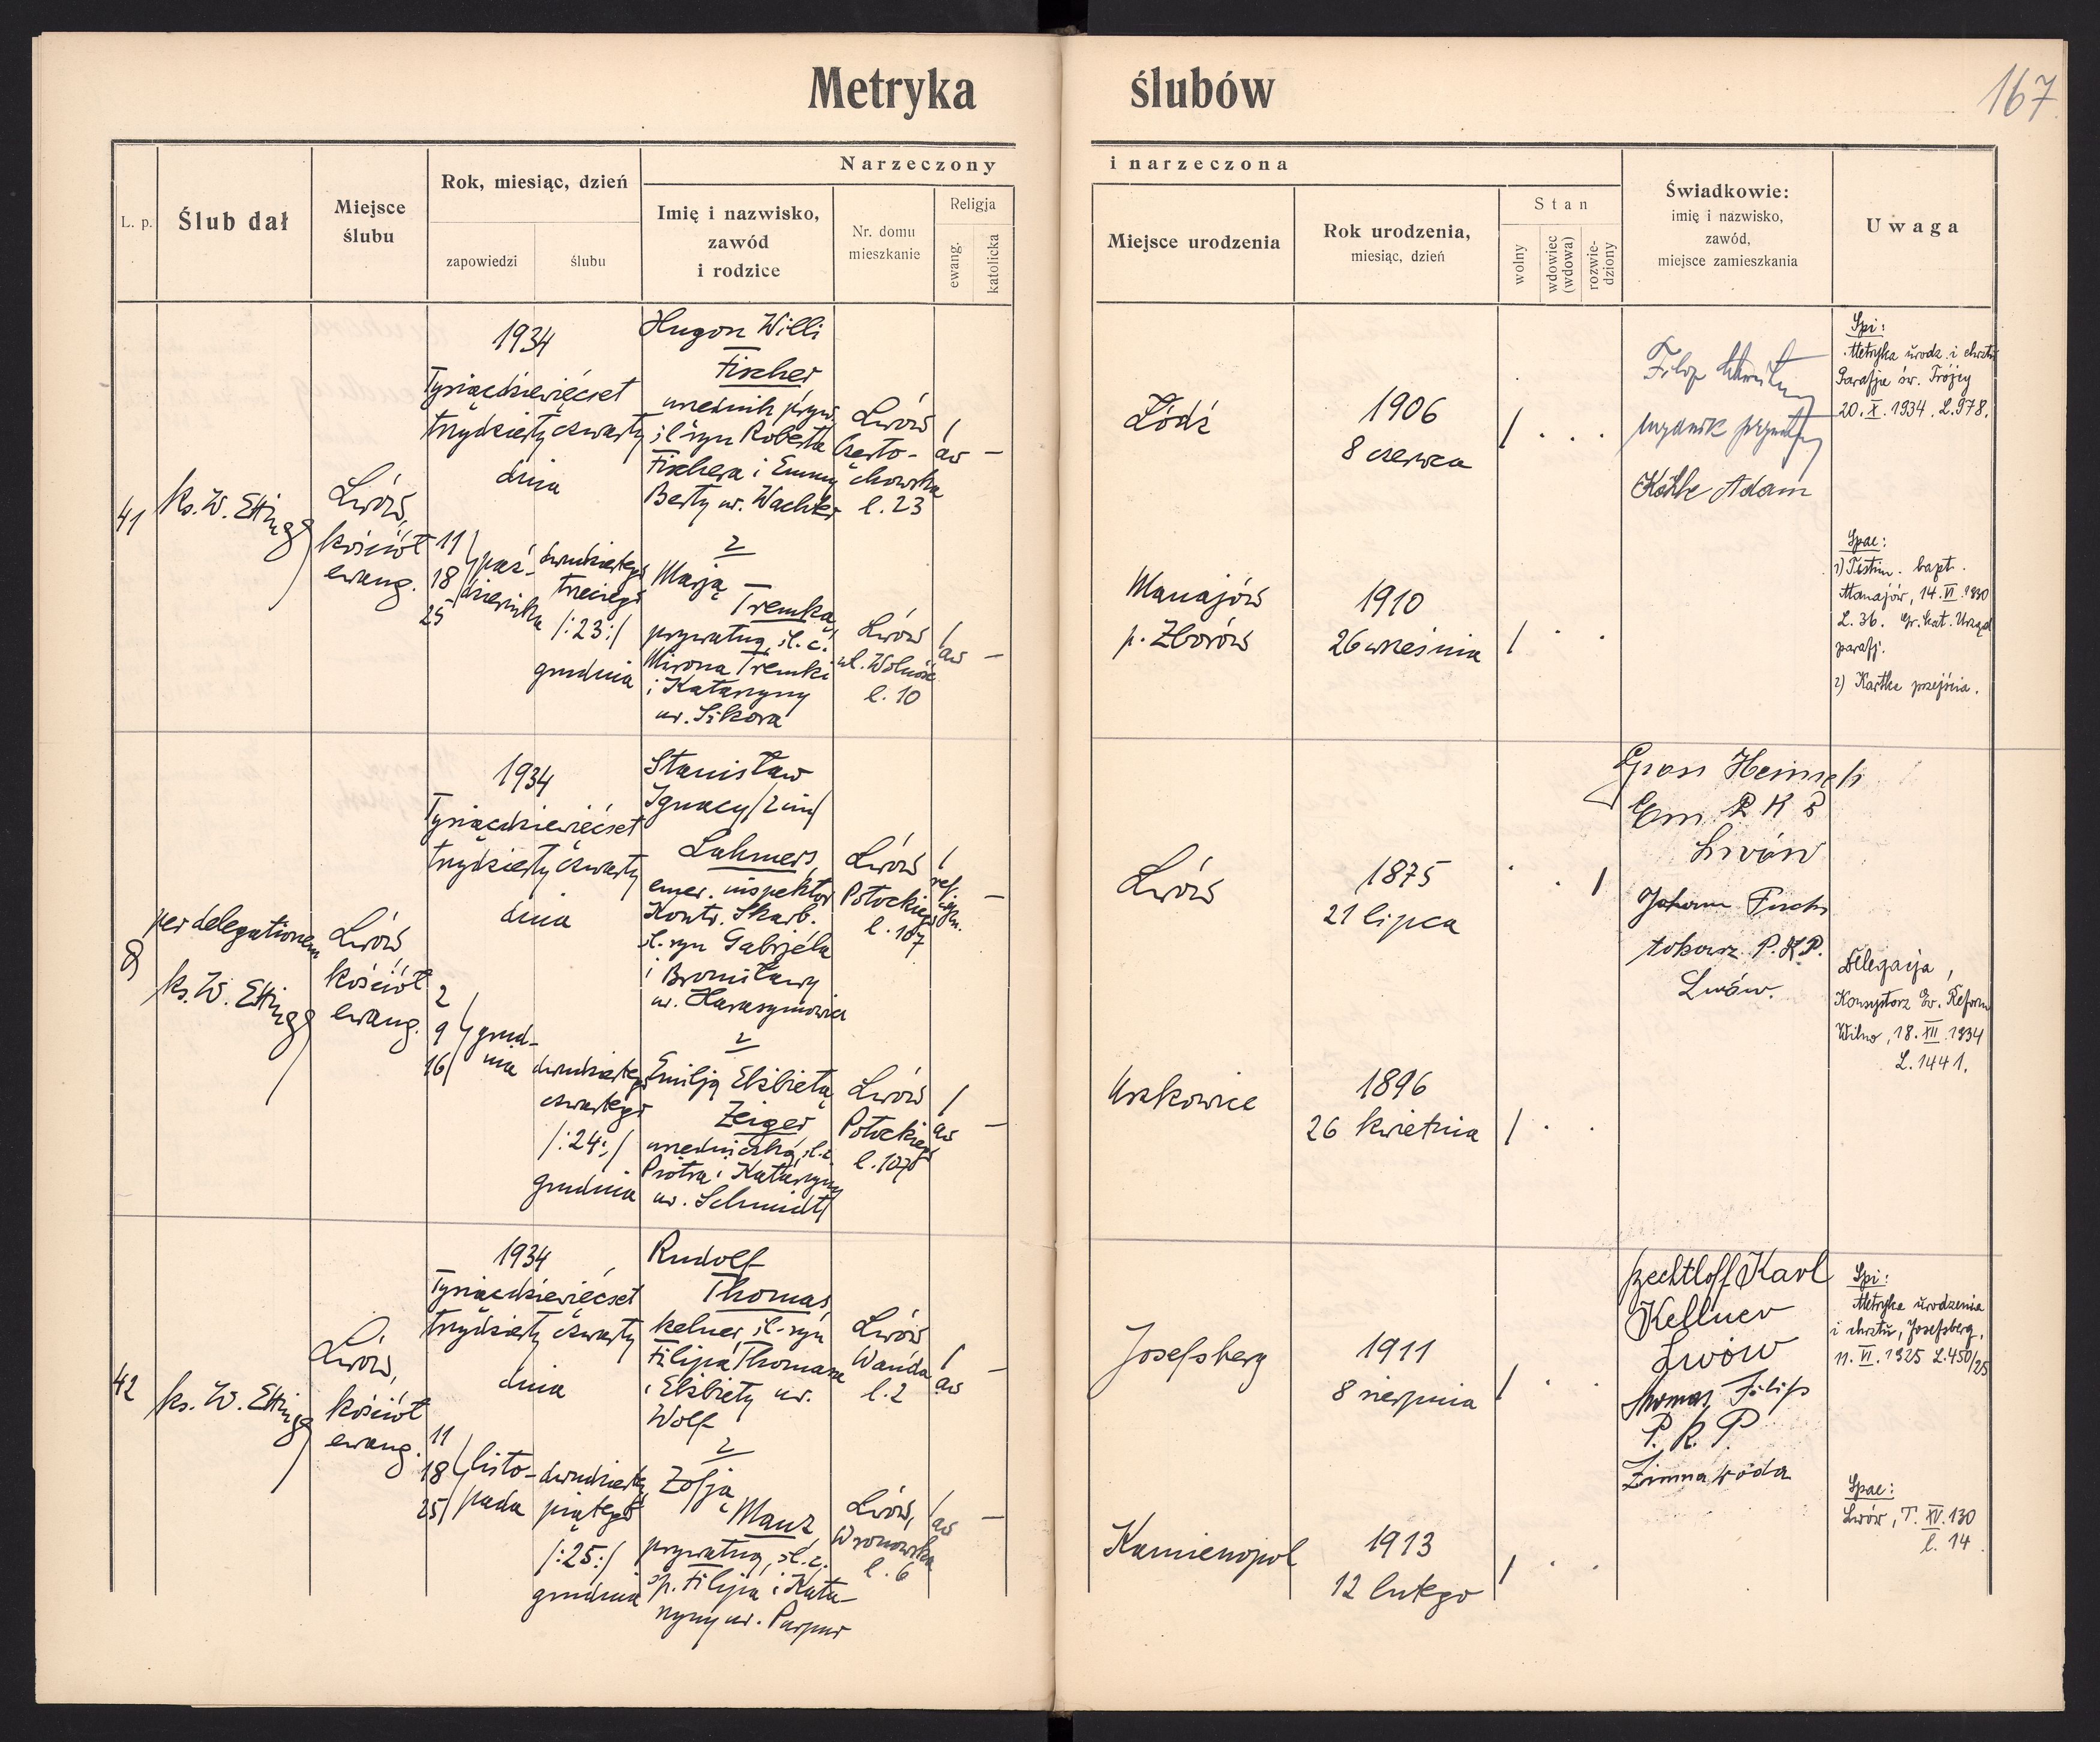 Metryka ślubów
167
L. p.
Ślub dał
Miejsce
ślubu
Rok, miesiąc, dzień
zapowiedzi
ślubu
Narzeczony
Imię i nazwisko,
zawód
i rodzice
Nr. domu
mieszkanie
Religja
ewang.
katolicka
i narzeczona
Miejsce urodzenia
Rok urodzenia,
miesiąc, dzień
Stan
wolny
wdowiec
(wdowa)
rozwie-
dziony
Świadkowie:
imię i nazwisko,
zawód,
miejsce zamieszkania
Uwaga
41
ks. W. Ettinger
Lwów,
kościół
ewang.
1934
Tysiącdziewięćset
trzydziesty czwarty
dnia
11
18
25
paź-
dziernika
dwudziestego
trzeciego
/:23:/
grudnia
Hugon Willi
Fischer,
urzędnik pryw.
śl. syn Roberta
Fischera i Emmy
Berty ur. Wachter
Lwów
Czesto-
chowska
l. 23
/
aw
—
z
Marją
Tremka,
prywatną, śl. c.
Mirona Tremki
i Katarzyny
ur. Sikora
Lwów
ul. Wolność
l. 10
/
aw
—
Łódź
1906
8 czerwca
/ . . .
Manajów
p. Zborów
1910
26 września
/ . .
Filip
urzędnik prywatny
Köhle Adam
Spi:
Metryka urodz. i chrztu
Parafja św. Trójcy
20. X. 1934. L. 978.
Spae:
1) Testim. bapt.
Manajów, 14. VI. 1930
L. 36. Gr. kat. Urząd
parafj.
2) Kartka przejścia.
8
per delegationem
ks. W. Ettinger
Lwów
kościół
ewang.
1934
Tysiącdziewięćset
trzydziesty czwarty
dnia
2
9
16
grud-
nia
dwudziestego
czwartego
/:24:/
grudnia
Stanisław
Ignacy /2 im/
Luhmers,
emer. inspektor
Kontr. Skarb.
śl. syn Gabrjela
i Bronisławy
ur. Harasymowicz
Lwów
Potockiego
l. 107
/
ref.
—
z
Emilją Elżbietą
Zeiger
urzędniczką, śl. c.
Piotra i Katarzyny
ur. Schmidt
Lwów
Potockiego
l. 107
/
aw
—
Lwów
1875
21 lipca
. . /
Uszkowice
1896
26 kwietnia
/ . .
Gross Heinrch
Em P K P
Lwów
Johann Fuchs
tokarz P.K.P.
Lwów.
Delegacja,
Konsystorz Ew. Reform
Wilno, 18. XII. 1934
L. 1441.
42
ks. W. Ettinger
Lwów,
kościół
ewang.
1934
Tysiącdziewięćset
trzydziesty czwarty
dnia
11
18
25
listo-
pada
dwudziestego
piątego
/:25:/
grudnia
Rudolf
Thomas,
kelner, śl. syn
Filipa Thomasa
i Elżbiety ur.
Wolf
Lwów
Wanda
l. 2
/
aw
—
z
Zofją
Manz,
prywatną, śl. c.
śp. Filipa i Kata-
rzyny ur. Purpur
Lwów,
Wronowska
l. 6
/
aw
—
Josefsberg
1911
8 sierpnia
/ . .
Kamienopol
1913
12 lutego
/ . .
Pechtloff Karl
Kellner
Lwów
Thomas Filip
P. K. P.
Zimna Woda
Spi:
Metryka urodzenia
i chrztu, Josefsberg,
11. VI. 1925 L. 450/25
Spae:
Lwów, T. XV. 130
l. 14.